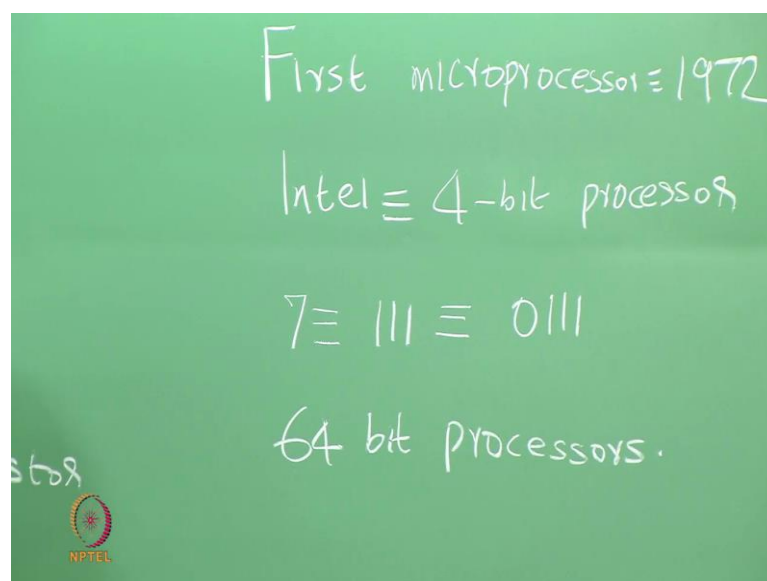 First microprocessor ≡ 1972
Intel ≡ 4-bit processor
7 ≡ 111 ≡ 0111
64 bit processors.
stor
NPTEL